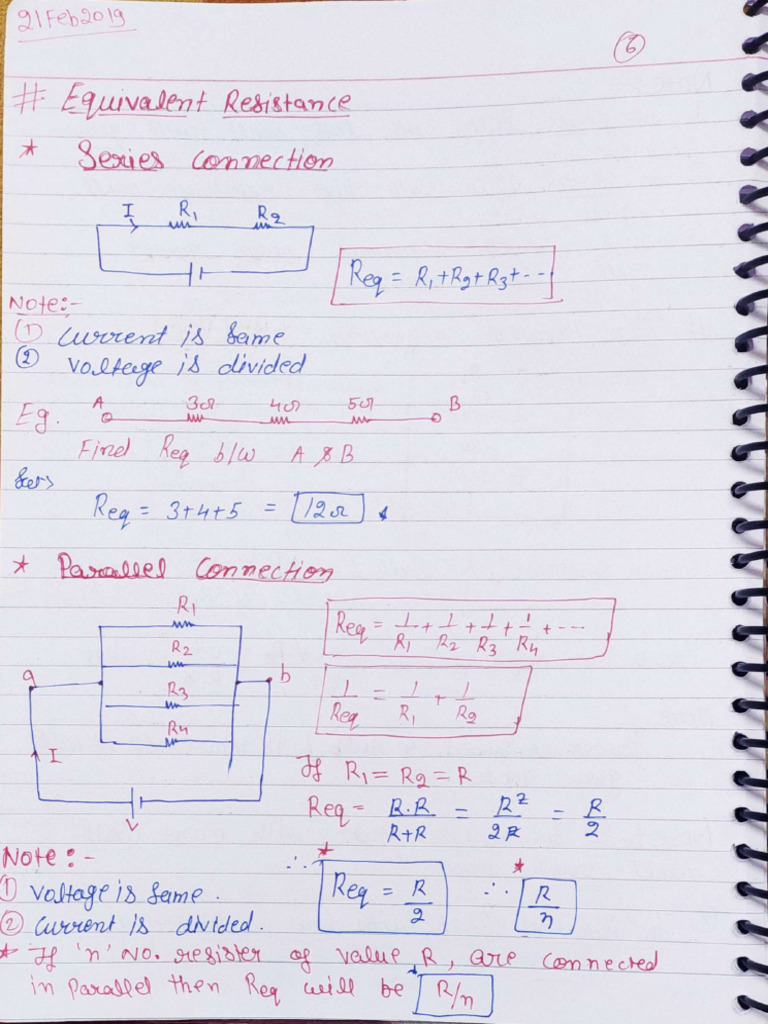 21Feb2019
6
# Equivalent Resistance
* Series Connection
I R1 R2
Req = R1+R2+R3+--
Note:-
① Current is Same
② Voltage is divided
Eg. A 3Ω 4Ω 5Ω B
Find Req b/w A & B
Req = 3+4+5 = 12Ω
* Parallel Connection
R1
R2
R3
R4
a
b
I
V
Req = 1/R1 + 1/R2 + 1/R3 + 1/R4 + ---
1/Req = 1/R1 + 1/R2
If R1 = R2 = R
Req = R.R/R+R = R²/2R = R/2
∴ * Req = R/2 ∴ * R/n
Note:-
① Voltage is Same.
② Current is divided.
* If 'n' No. resister of value R, are connected
in Parallel then Req will be R/n